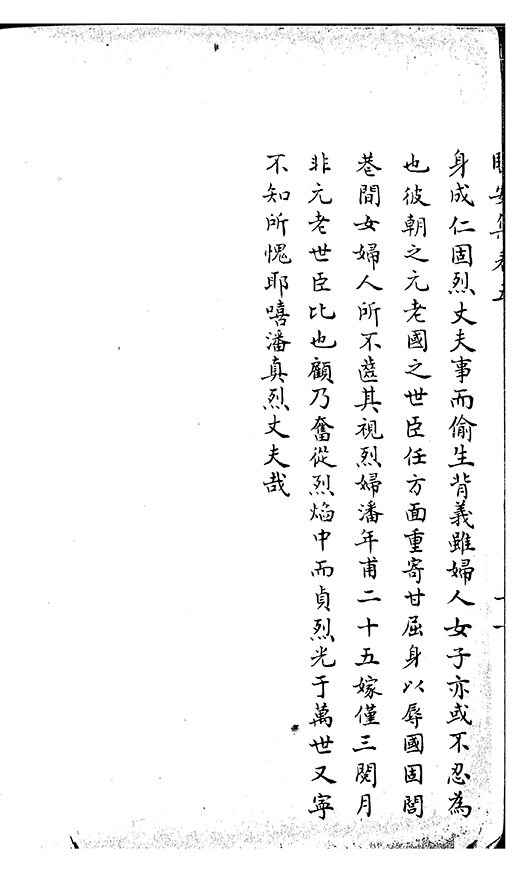 身成仁固烈丈夫事而偷生背義雖婦人女子亦或不忍為
也彼朝之元老國之世臣任方面重寄甘屈身以辱國固閭
巷間女婦人所不齒其視烈婦潘年甫二十五嫁僅三閱月
非元老世臣比也顧乃奮從烈焰中而貞烈光于萬世又寧
不知所愧耶嘻潘真烈丈夫哉